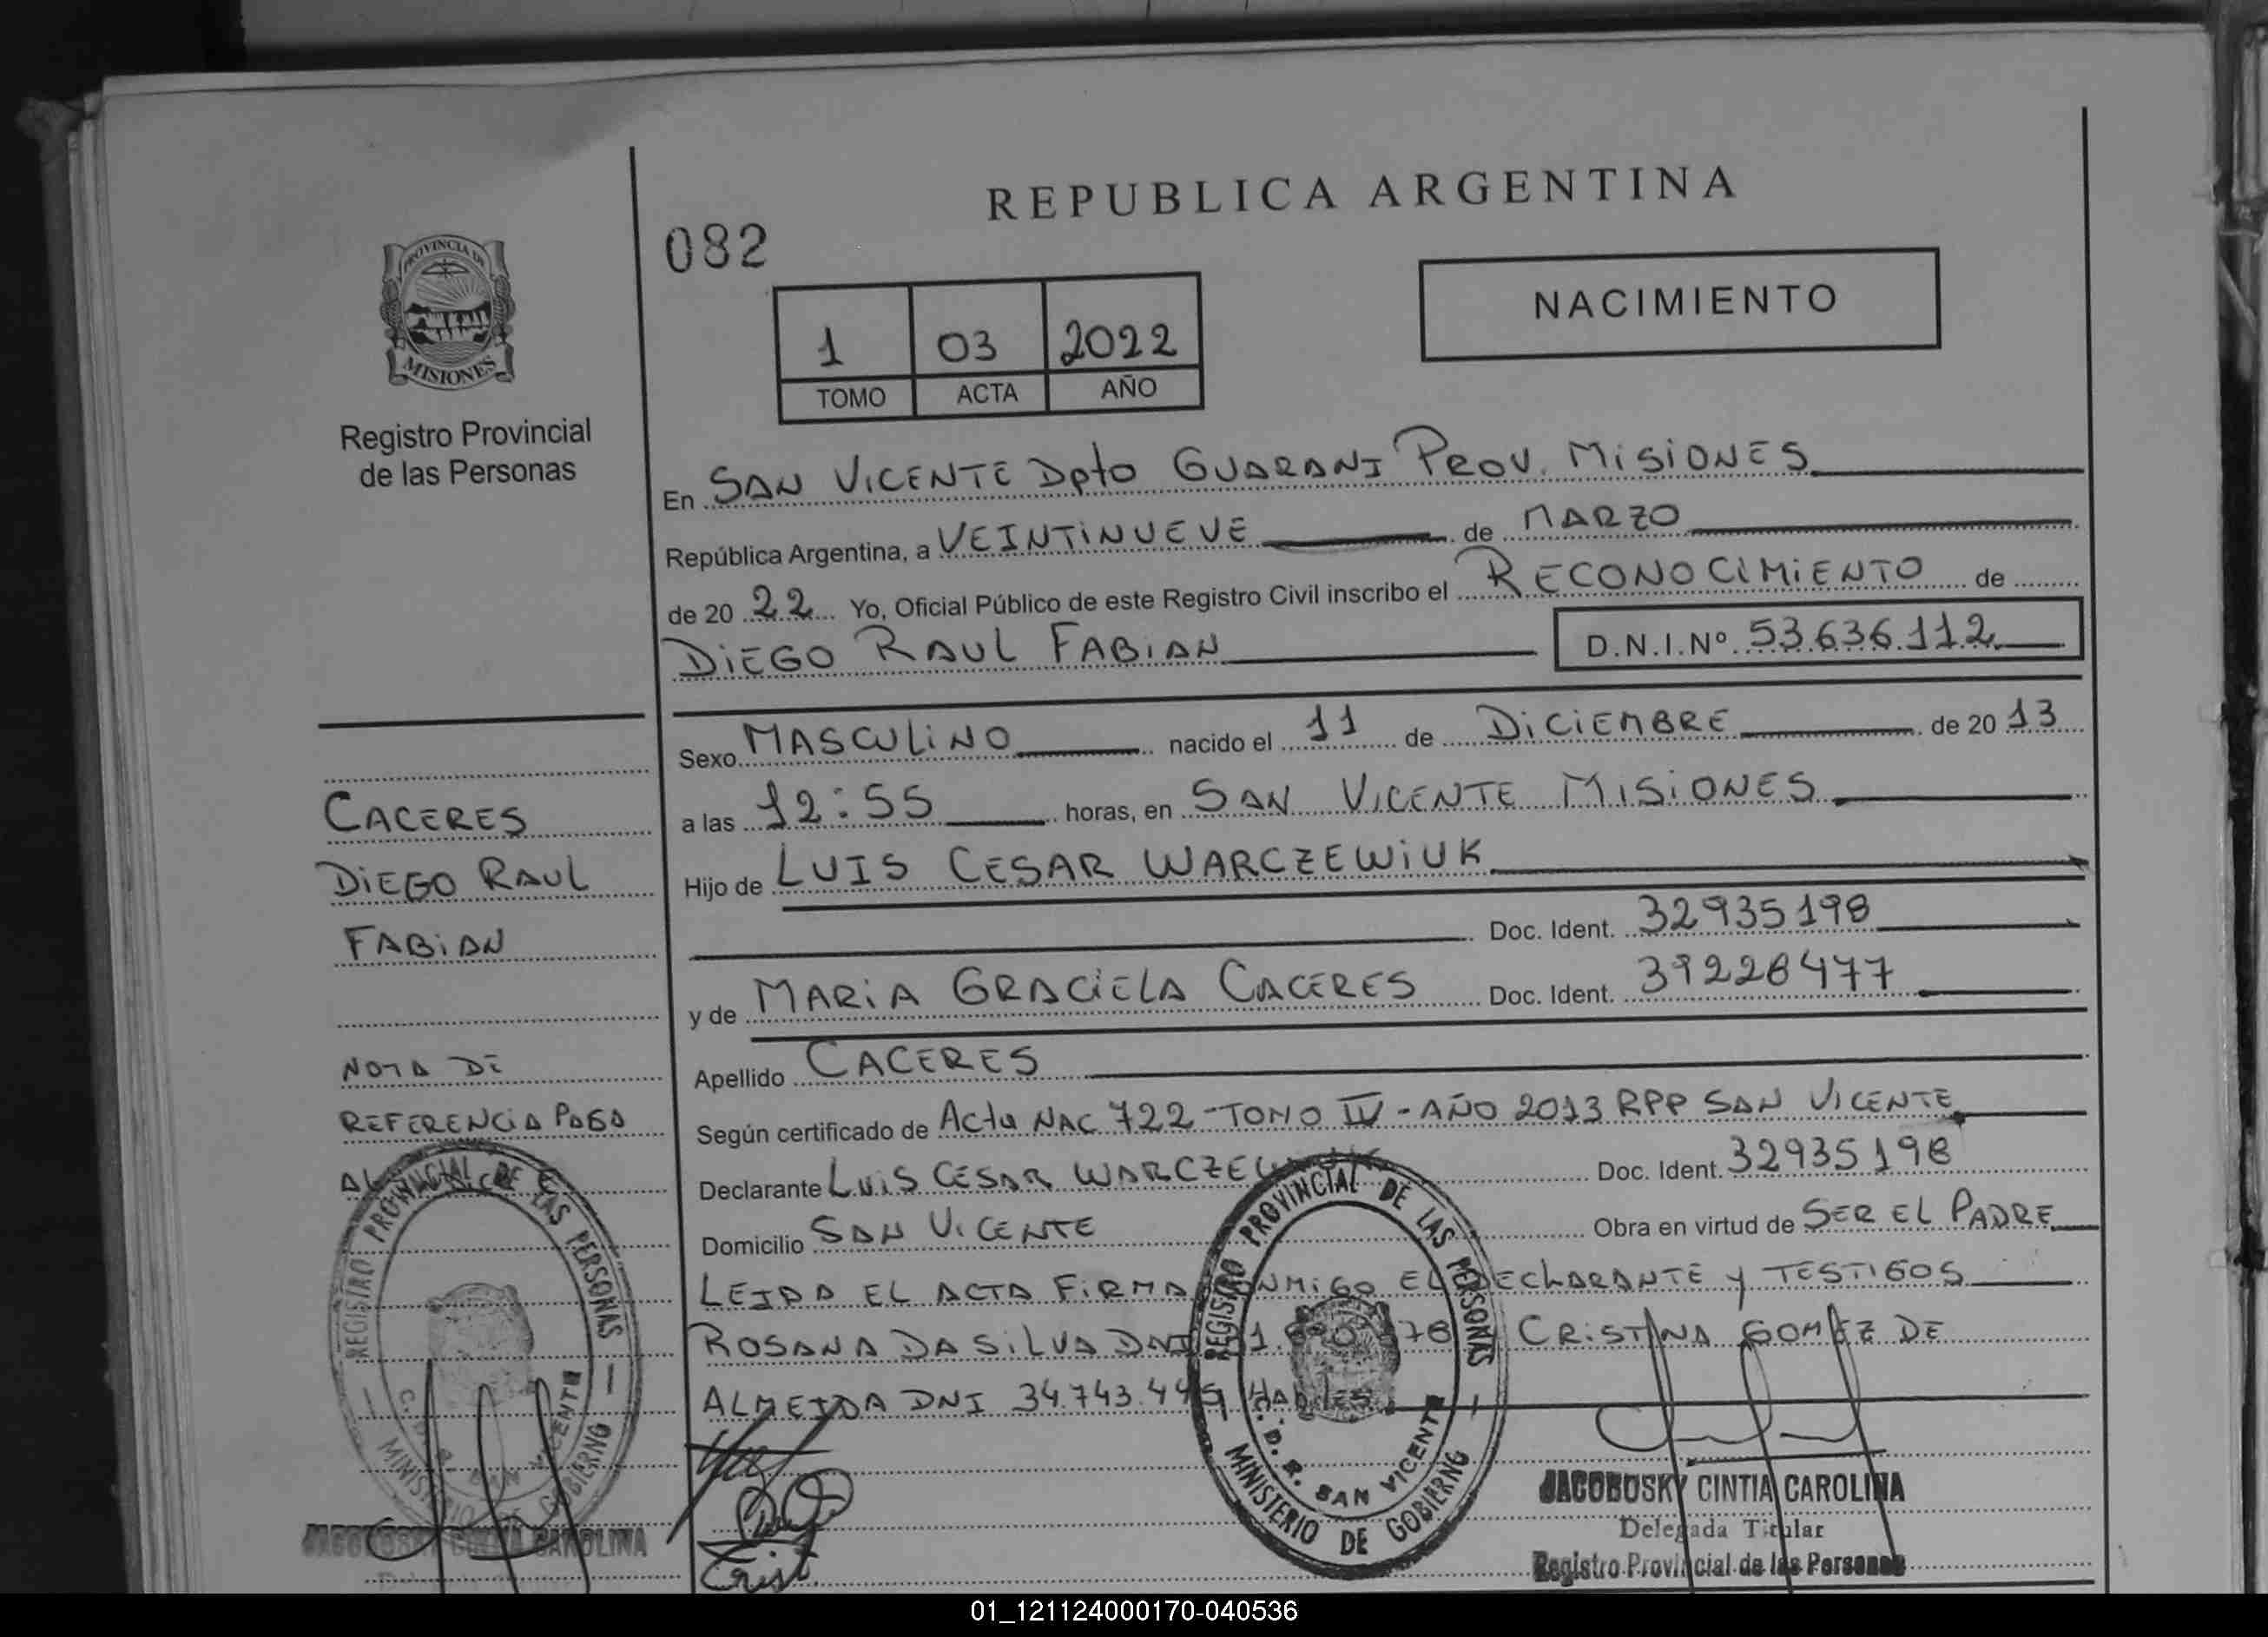 REPUBLICA ARGENTINA
082
NACIMIENTO
1 03 2022
TOMO ACTA AÑO
PROVINCIA DE
MISIONES
Registro Provincial
de las Personas
En SAN VICENTE Dpto GUARANI PROV. MISIONES
República Argentina, a VEINTINUEVE de MARZO
de 20 22 Yo, Oficial Público de este Registro Civil inscribo el RECONOCIMIENTO de
DIEGO RAUL FABIAN D.N.I.Nº 53636112
Sexo MASCULINO nacido el 11 de DICIEMBRE de 20 13
a las 12:55 horas, en SAN VICENTE MISIONES
Hijo de LUIS CESAR WARCZEWIUK
Doc. Ident. 32935198
y de MARIA GRACIELA CACERES Doc. Ident. 39226477
Apellido CACERES
Según certificado de Acta NAC 722 - TOMO IV - AÑO 2013 RPP SAN VICENTE
Declarante LUIS CESAR Doc. Ident. 32935198
Domicilio SAN VICENTE Obra en virtud de SER EL PADRE
LEIDA EL ACTA FIRMA CONMIGO EL DECLARANTE y TESTIGOS
ROSANA DA SILVA DNI CRISTINA GOMEZ DE
ALMEIDA DNI 34.743.445
CACERES
DIEGO RAUL
FABIAN
NOTA DE
REFERENCIA PASA
AL
REGISTRO PROVINCIAL DE LAS PERSONAS
MINISTERIO DE GOBIERNO
SAN VICENTE
REGISTRO PROVINCIAL DE LAS PERSONAS
MINISTERIO DE GOBIERNO
C.D.R. SAN VICENTE
Crist
JACOBOSKY CINTIA CAROLINA
Delegada Titular
Registro Provincial de las Personas
JACOBOSKY CINTIA CAROLINA
01_121124000170-040536